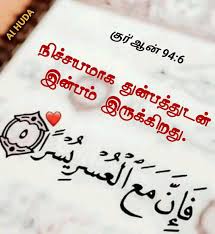 AL HUDA
குர்ஆன் 94:6
நிச்சயமாக துன்பத்துடன்
இன்பம் இருக்கிறது.
فَإِنَّ مَعَ الْعُسْرِ يُسْرًا ٥